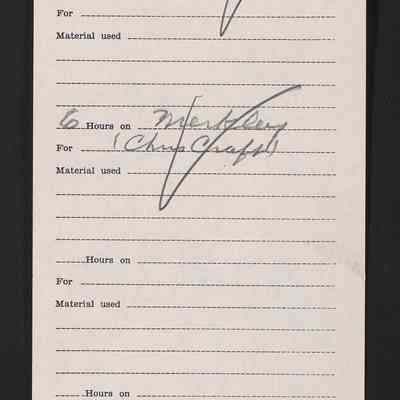 For
Material used
6 Hours on Merkley
For (Chris Craft)
Material used
Hours on
For
Material used
Hours on